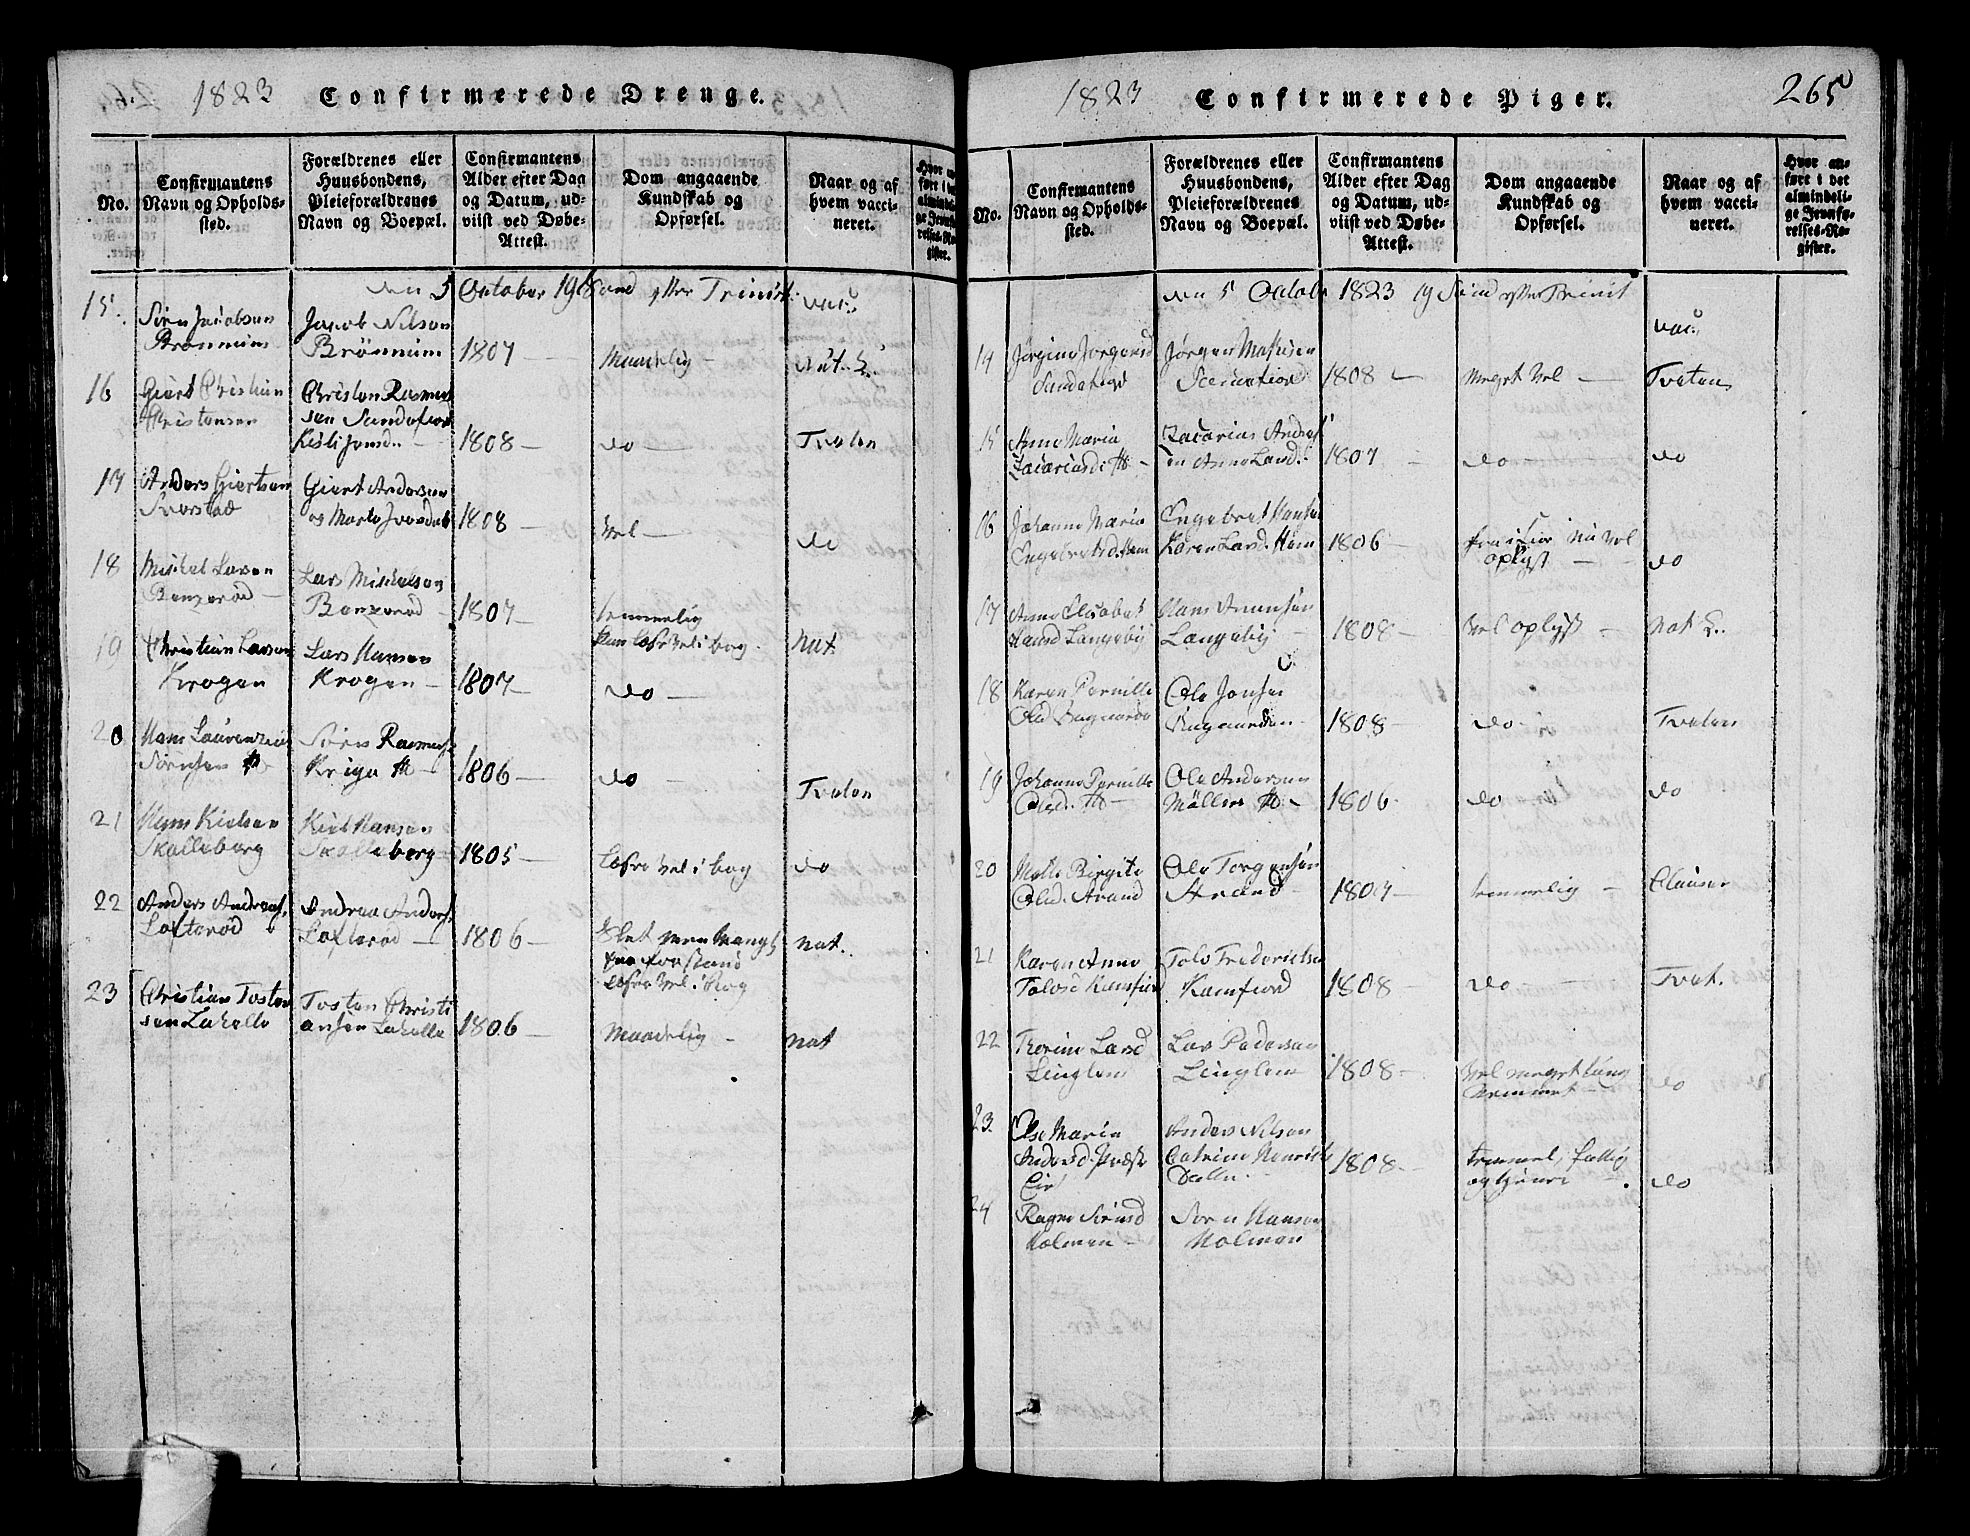 1823 Confirmerede Drenge.
No.
Confirmantens
Navn og Opholds-
sted.
Forældrenes eller
Huusbondens,
Pleieforældrenes
Navn og Boepæl.
Confirmantens
Alder efter Dag
og Datum, ud-
viist ved Døbe-
Attest.
Dom angaaende
Kundskab og
Opførsel.
Naar og af
hvem vacci-
neret.
den 5 October 19 efter Trinit. vac:
15.
Sørn Jacobsen
Brønnum
Jacob Nilsen
Brønnum
1807 — Maadelig — Nat. K.
16
Giert Christian
Christensen
Christen Rasmus
sen Sandefiord
1808 — do — Tveten
17
Anders Giertsen
Giert Andersen
1808 — Vel — do
18
Mickel Larsen
Lars Mickelsen
1807 — temmelig
19
Christian Larsen
Krogen
Lars Hansen
Krogen —
kun læser vel i bog. nat.
1807 — do —
20
Hans Laurenzius
Sørnsen
Sørn Rasmus
Kriga
1806 — do — Tveten
21
Hans Kielsen
Skalleberg
Kiel Hansen
Skalleberg
1805 — læser vel i bog do
22
Anders Andreas
Lofterød
Andreas Anders
Lofterød —
1806 — Slet men Mangl
paa forstand nat.
læser vel i Bog
23
Christian Tosten
sen Lakelle
Tosten Christi
ansen Lakelle
1806 — Maadelig — nat
1823 Confirmerede Piger. 265
No.
Confirmantens
Navn og Opholds-
sted.
Forældrenes eller
Huusbondens,
Pleieforældrenes
Navn og Boepæl.
Confirmantens
Alder efter Dag
og Datum, ud-
viist ved Døbe-
Attest.
Dom angaaende
Kundskab og
Opførsel.
Naar og af
hvem vacci-
neret.
Hvor an-
ført i det
almindeli-
ge Jevnfø-
relses-Re-
gister.
den 5 Octob 1823 19 Sønd efter Trinit
vac:
14
Jørgine Jorgensd
Jørgen Mathisen
1808 — Meget Vel — Tveten
15
Anne Maria
Zacariasd.
Zacarias Andres
en Anne Larsd.
1807 — do — do
16
Johanne Maria
Engebretsd. Hem
Engebret Hansen
Karen Larsd. Hem
1806 — nu vel
oplyst — do
17
Anne Elsabet
Hansd Langeby
Hans Amunsen
Langeby —
1808 — Vel oplyst — nat K.
18
Karen Pernille
Olsd
Ole Jonsen
1808 — do — Tveten
19
Johanne Pernille
Olsd.
Ole Andersen
Møllers
1806 — do — do
20
Mette Birgite
Olsd. Strand
Ole Torgensen
Strand —
1807 — temmelig — Clausen
21
Karen Anne
Tolvsd Kamfiord
Tolv Frederichsen
Kamfiord
1808 — do — Tvet.
22
Therine Larsd
Linglem
Lars Pedersen
Linglem
1808 — Vel meget
do
23.
Else Maria
Andersd.
Anders Nilsen
Catrine Henrichs
1808 — temmel, fattig
do
24
Ragne Sørnsd
Holmen —
Sørn Hansen
Holmen